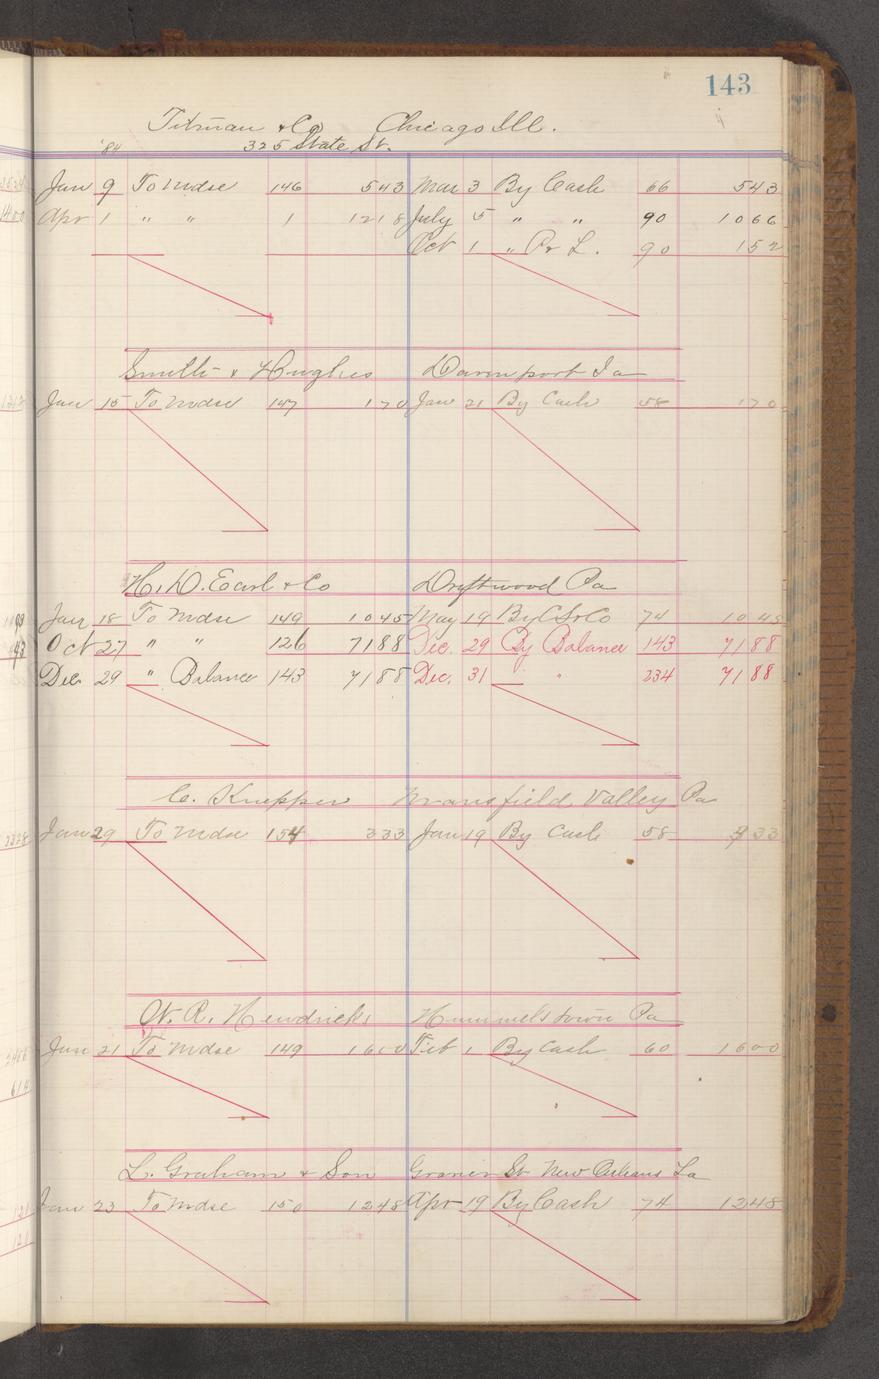 143
Titman & Co Chicago Ill.
'84 325 State St.
Jan 9 To Mdse 146 543 Mar 3 By Cash 66 543
Apr 1 " " 1 1218 July 5 " " 90 1066
Oct 1 " Pr L. 90 152
Smith & Hughes Davenport Ia
Jan 15 To Mdse 147 170 Jan 21 By Cash 58 170
H. D. Earl & Co Driftwood Pa
Jan 18 To Mdse 149 1045 May 19 By C S & Co 74 1045
Oct 27 " " 126 7188 Dec. 29 By Balance 143 7188
Dec 29 " Balance 143 7188 Dec. 31 " 234 7188
C. Knepper Mansfield Valley Pa
Jan 29 To Mdse 154 333 Jan 19 By Cash 58 333
W. R. Hendricks Hummelstown Pa
Jan 21 To Mdse 149 1600 Feb 1 By Cash 60 1600
L. Graham & Son Gravier St New Orleans La
Jan 23 To Mdse 150 1248 Apr 19 By Cash 74 1248